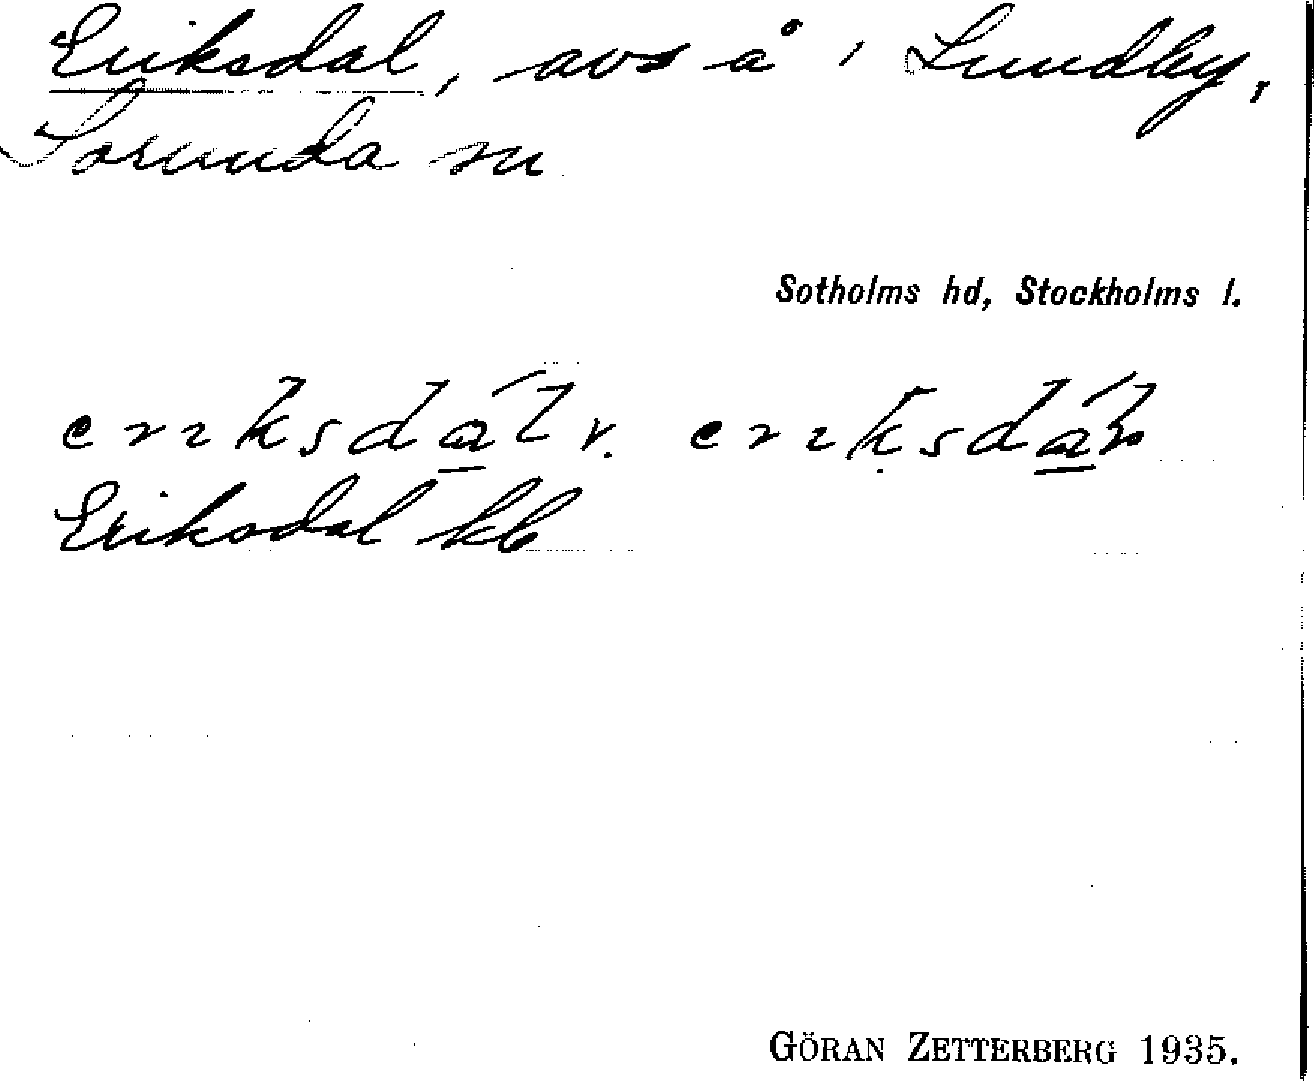 Eriksdal, avs å i Lundby,
Sorunda sn
Sotholms hd, Stockholms l.
erıksdál v. erıksdáɫ
Eriksdal kb
GÖRAN ZETTERBERG 1935.